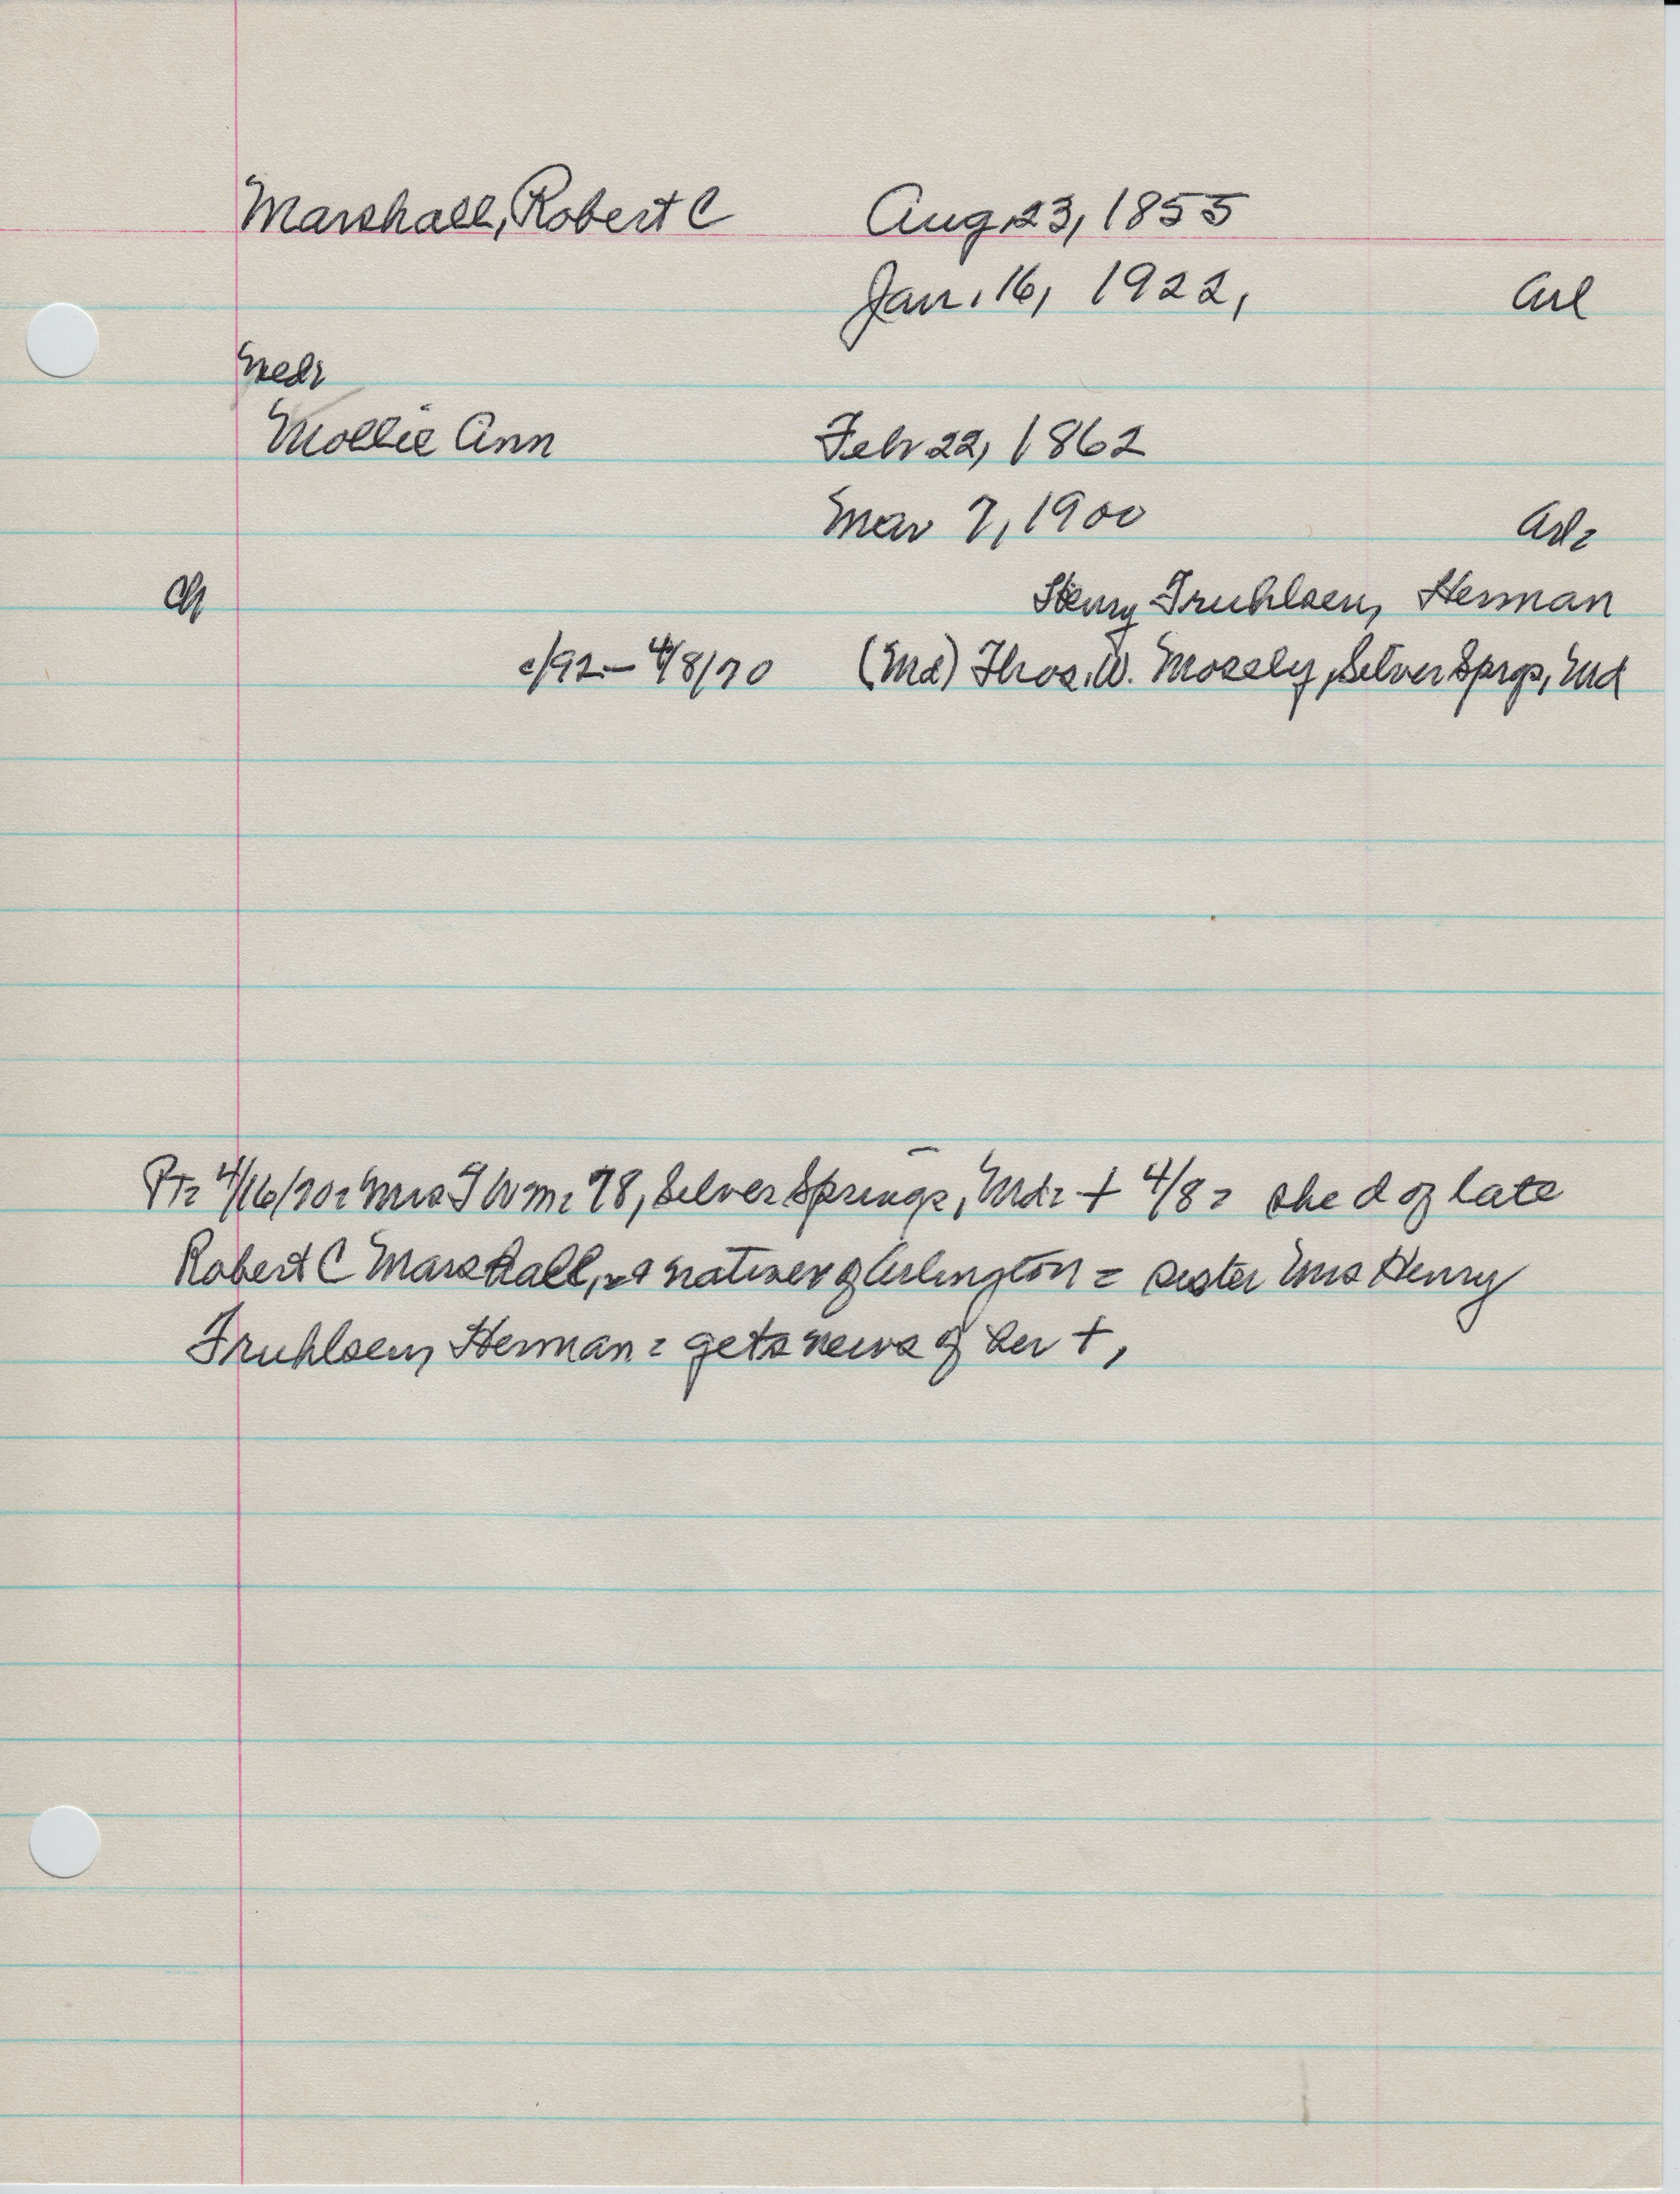 Marshall, Robert C Aug 23, 1855
Jan. 16, 1922, Arl
Med:
Mollie Ann Feb 22, 1862
Mar 7, 1900 Arl:
Ch Henry Fruhlsen, Herman
c/92 – 4/8/70 (Md) Thos. W. Mosely, Silver Sprgs, Md
4/16/70: Mrs T W M: 78, Silver Springs, Md: + 4/8: she d of late
Robert C Marshall, native of Arlington = sister Mrs Henry
Fruhlsen, Herman: gets news of her +,